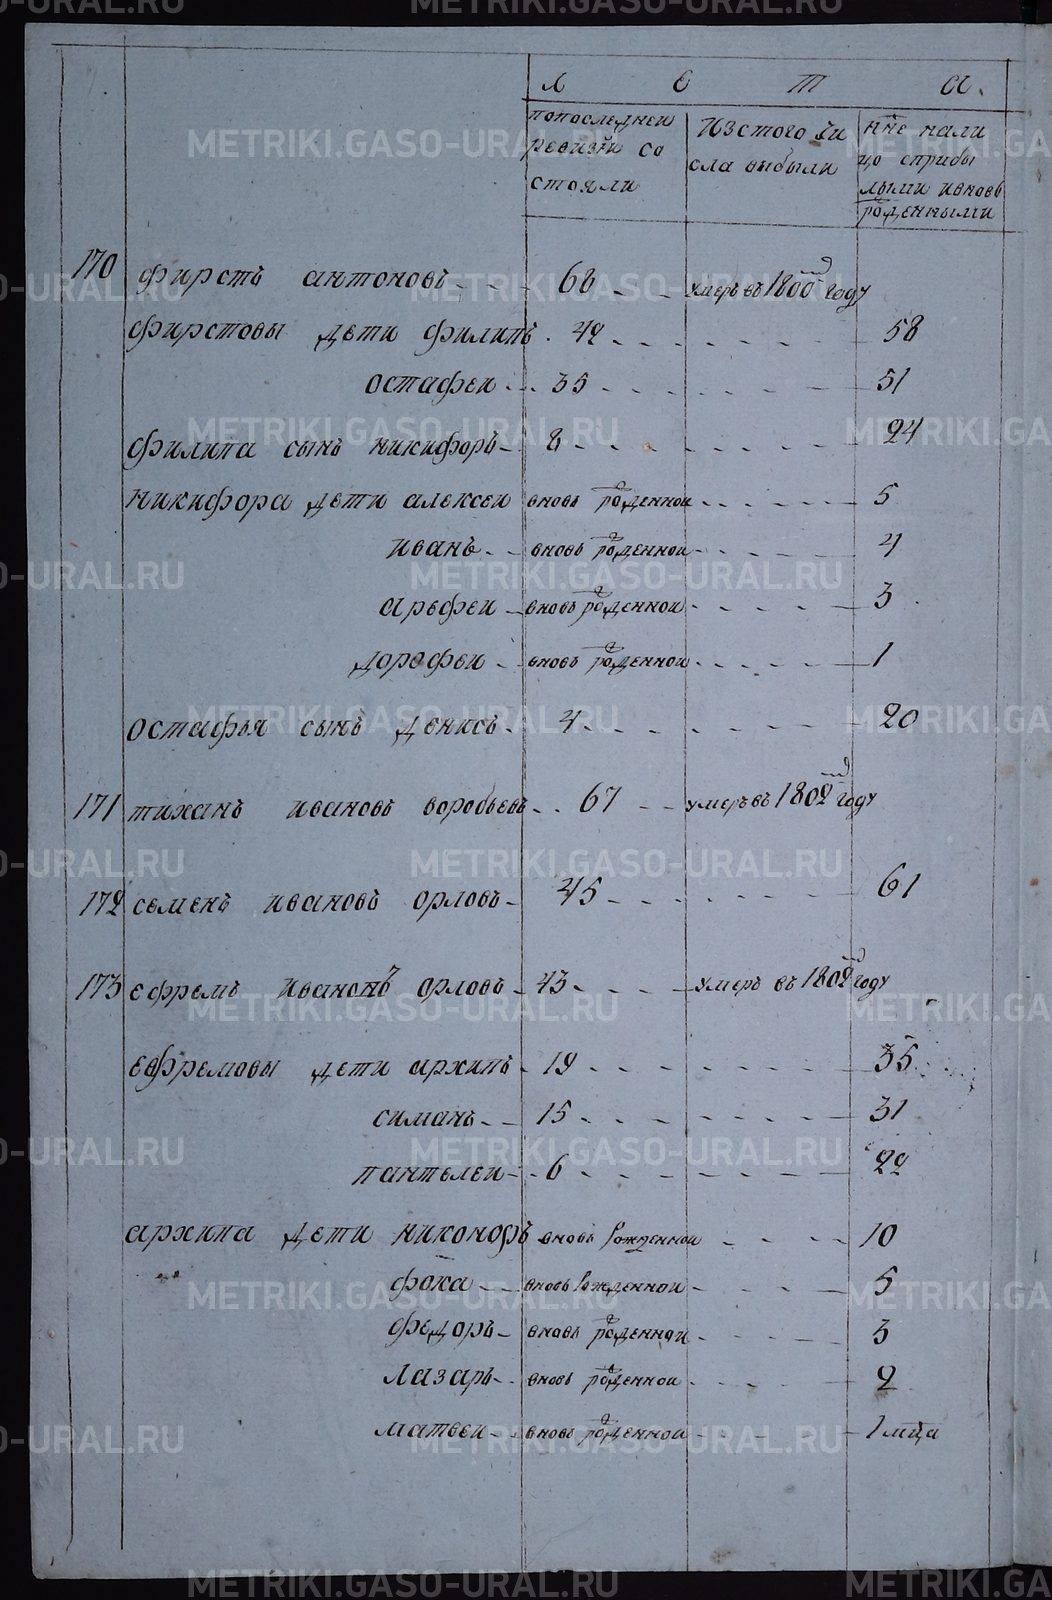 Л Е Т А.
попоследней ревизии состояли
Изстого числа выбыли
нне налицо сприбылыми ивновь рожденными
170 фирстъ антоновъ 68 умеръ въ 1800м году
фирстовы дети филипъ 42 58
остафеи 35 51
филипа сынъ никифоръ 8 24
никифора дети алексеи вновь рожденнои 5
иванъ вновь рожденнои 4
арефеи вновь рожденнои 3
дорофеи вновь рожденнои 1
остафья сынъ денисъ 4 20
171 тиханъ ивановъ воробьевъ 67 умеръ въ 1802м году
172 семенъ ивановъ орловъ 45 61
173 ефремъ ивановъ орловъ 43 умеръ въ 1802м году
ефремовы дети архипъ 19 35
симанъ 15 31
пантелеи 6 22
архипа дети никоноръ вновь рожденнои 10
фока вновь рожденнои 5
федоръ вновь рожденнои 3
лазарь вновь рожденнои 2
матвеи вновь рожденнои 1 мца
METRIKI.GASO-URAL.RU